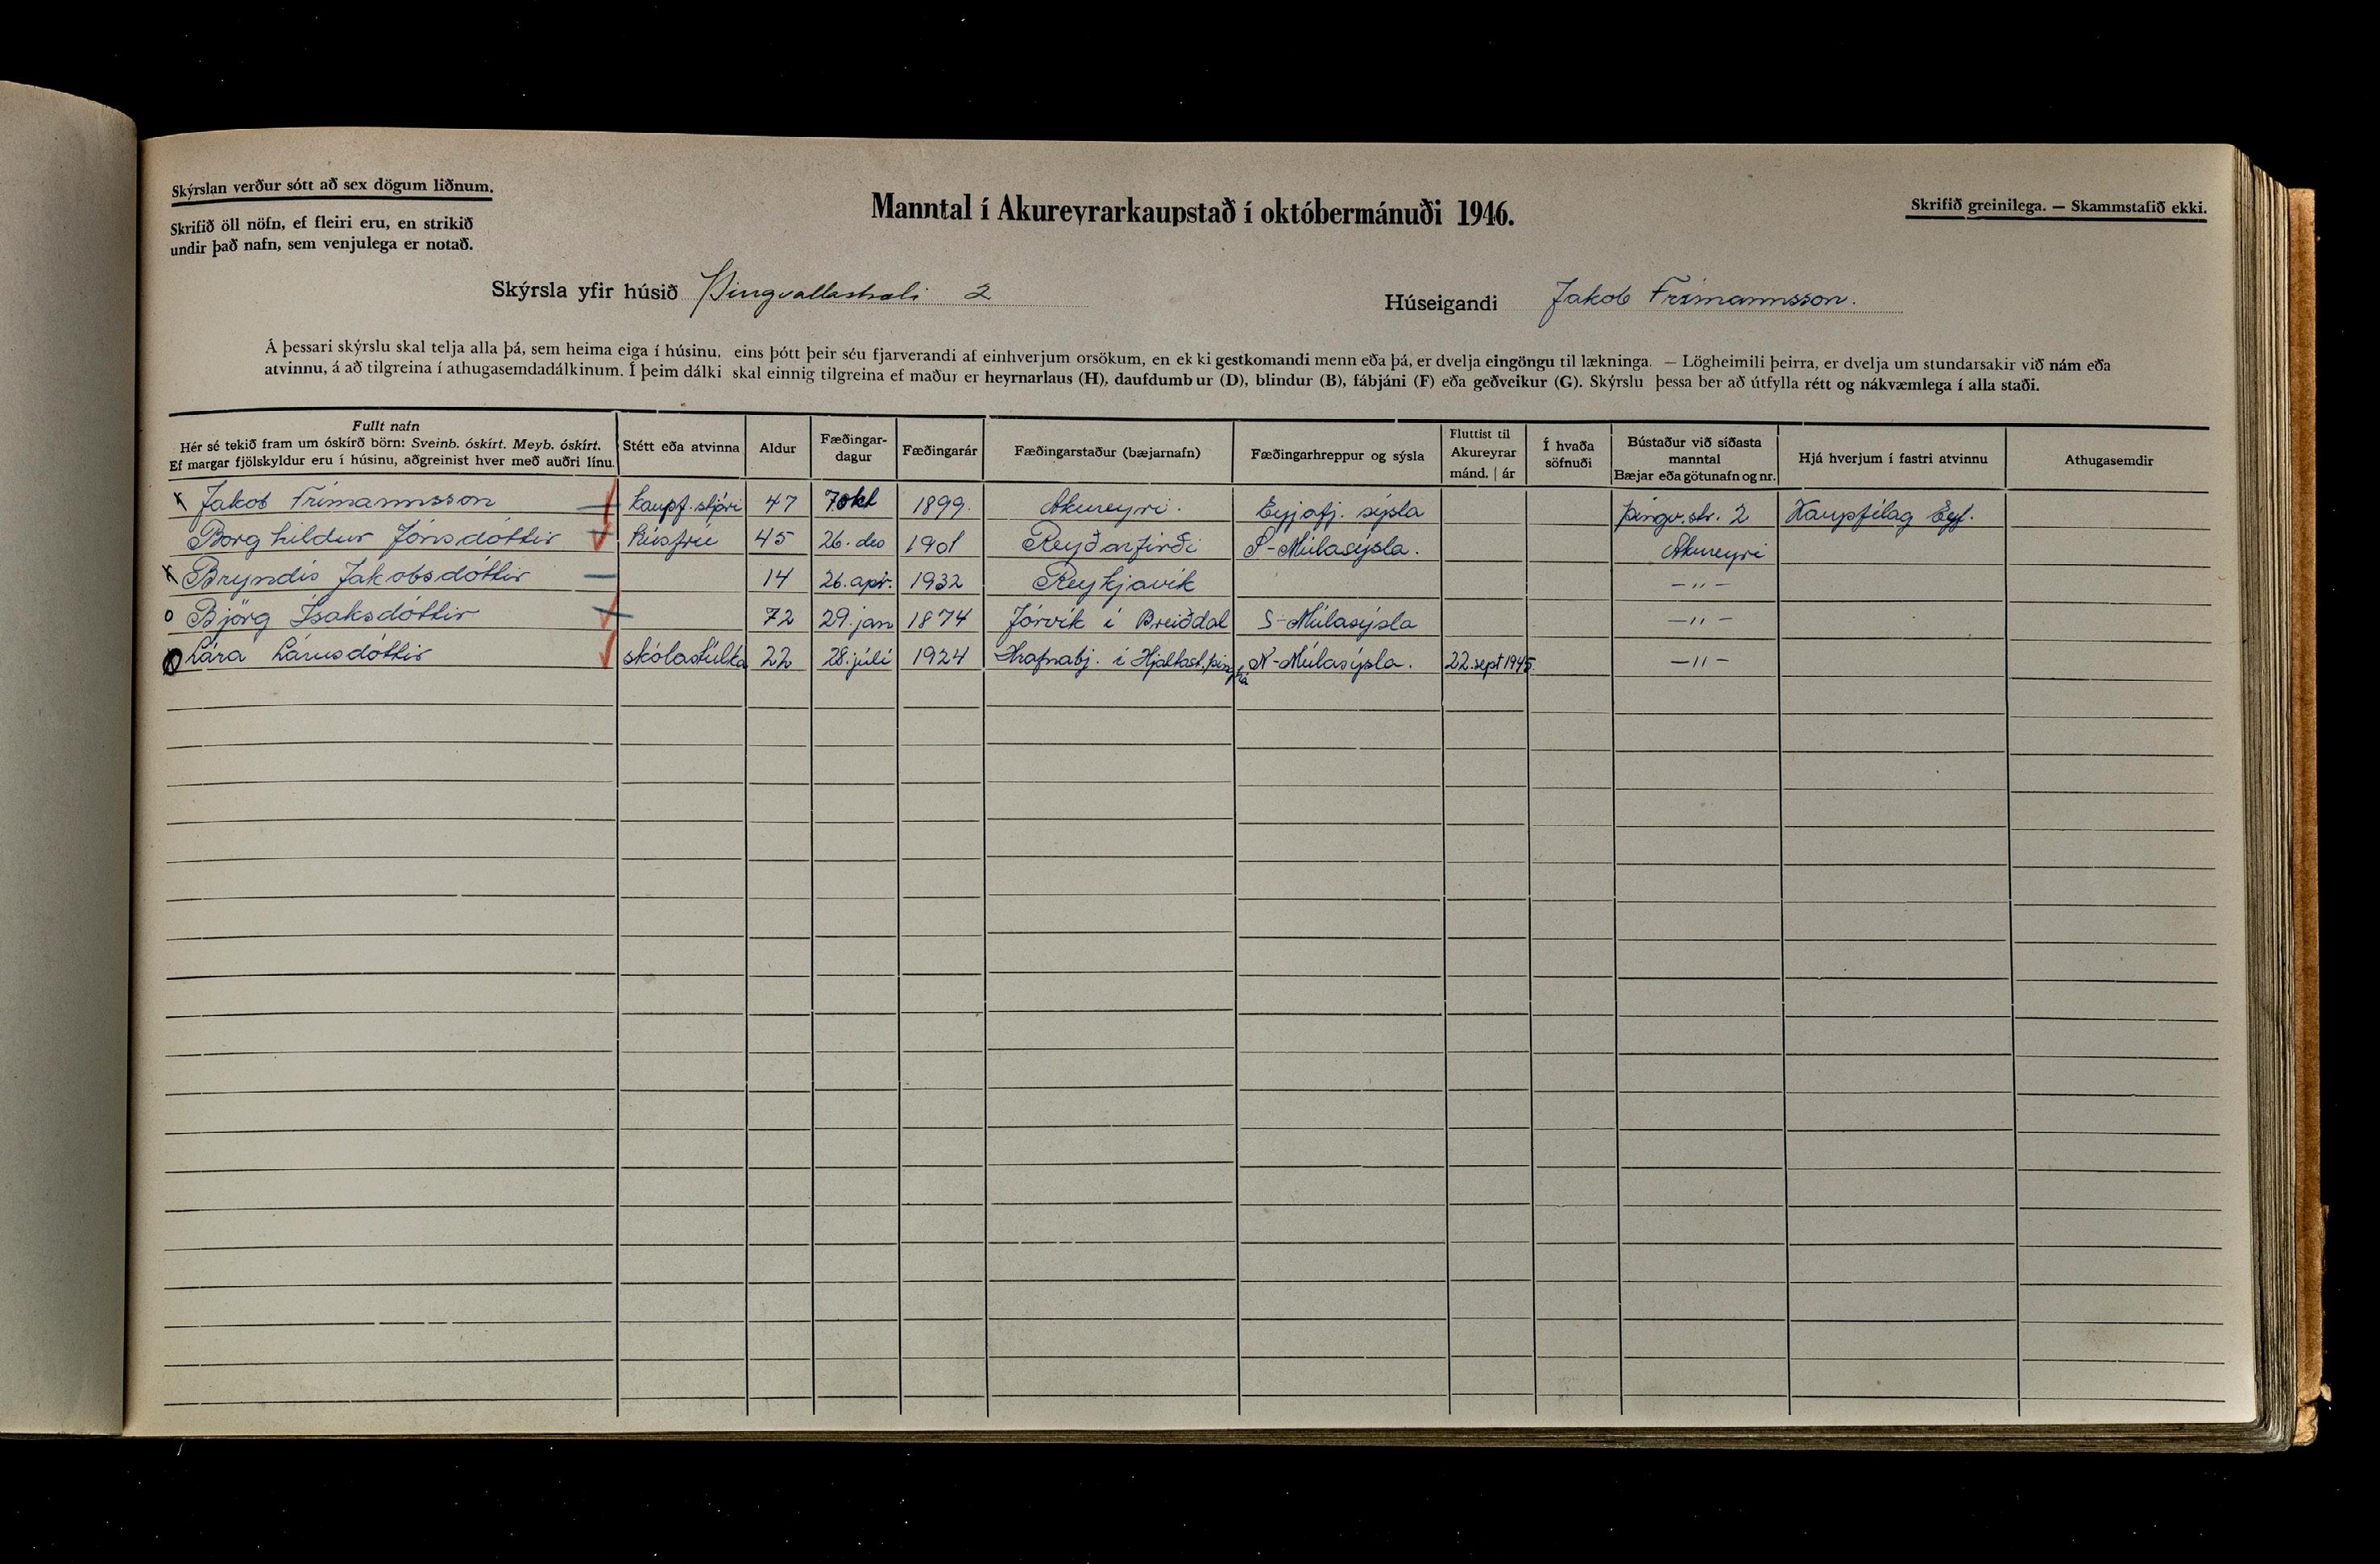 Skýrslan verður sótt að sex dögum liðnum.
Skrifið öll nöfn, ef fleiri eru, en strikið
undir það nafn, sem venjulega er notað.
Manntal í Akureyrarkaupstað í októbermánuði 1946.
Skrifið greinilega. — Skammstafið ekki.
Skýrsla yfir húsið Þingvallastræti 2
Húseigandi Jakob Frímannsson.
Á þessari skýrslu skal telja alla þá, sem heima eiga í húsinu, eins þótt þeir séu fjarverandi af einhverjum orsökum, en ek ki gestkomandi menn eða þá, er dvelja eingöngu til lækninga. — Lögheimili þeirra, er dvelja um stundarsakir við nám eða
atvinnu, á að tilgreina í athugasemdadálkinum. Í þeim dálki skal einnig tilgreina ef maður er heyrnarlaus (H), daufdumb ur (D), blindur (B), fábjáni (F) eða geðveikur (G). Skýrslu þessa ber að útfylla rétt og nákvæmlega í alla staði.
Fullt nafn
Hér sé tekið fram um óskírð börn: Sveinb. óskírt. Meyb. óskírt.
Ef margar fjölskyldur eru í húsinu, aðgreinist hver með auðri línu.
Stétt eða atvinna
Aldur
Fæðingar-
dagur
Fæðingarár
Fæðingarstaður (bæjarnafn)
Fæðingarhreppur og sýsla
Fluttist til
Akureyrar
mánd. | ár
Í hvaða
söfnuði
Bústaður við síðasta
manntal
Bæjar eða götunafn og nr.
Hjá hverjum í fastri atvinnu
Athugasemdir
x Jakob Frímannsson kaupf.stjóri 47 7 okt 1899. Akureyri. Eyjafj. sýsla Þingv.str. 2 Kaupfélag Eyf.
Borghildur Jónsdóttir húsfrú 45 26. des 1901 Reyðarfirði S-Múlasýsla. Akureyri
x Bryndís Jakobsdóttir 14 26. apr. 1932 Reykjavík —"—
o Björg Ísaksdóttir 72 29. jan 1874 Jórvík í Breiðdal S-Múlasýsla —"—
o Lára Lárusdóttir skólastúlka 22 28. júlí 1924 Hrafnabj. í Hjaltast.þinghá N-Múlasýsla. 22. sept 1945. —"—